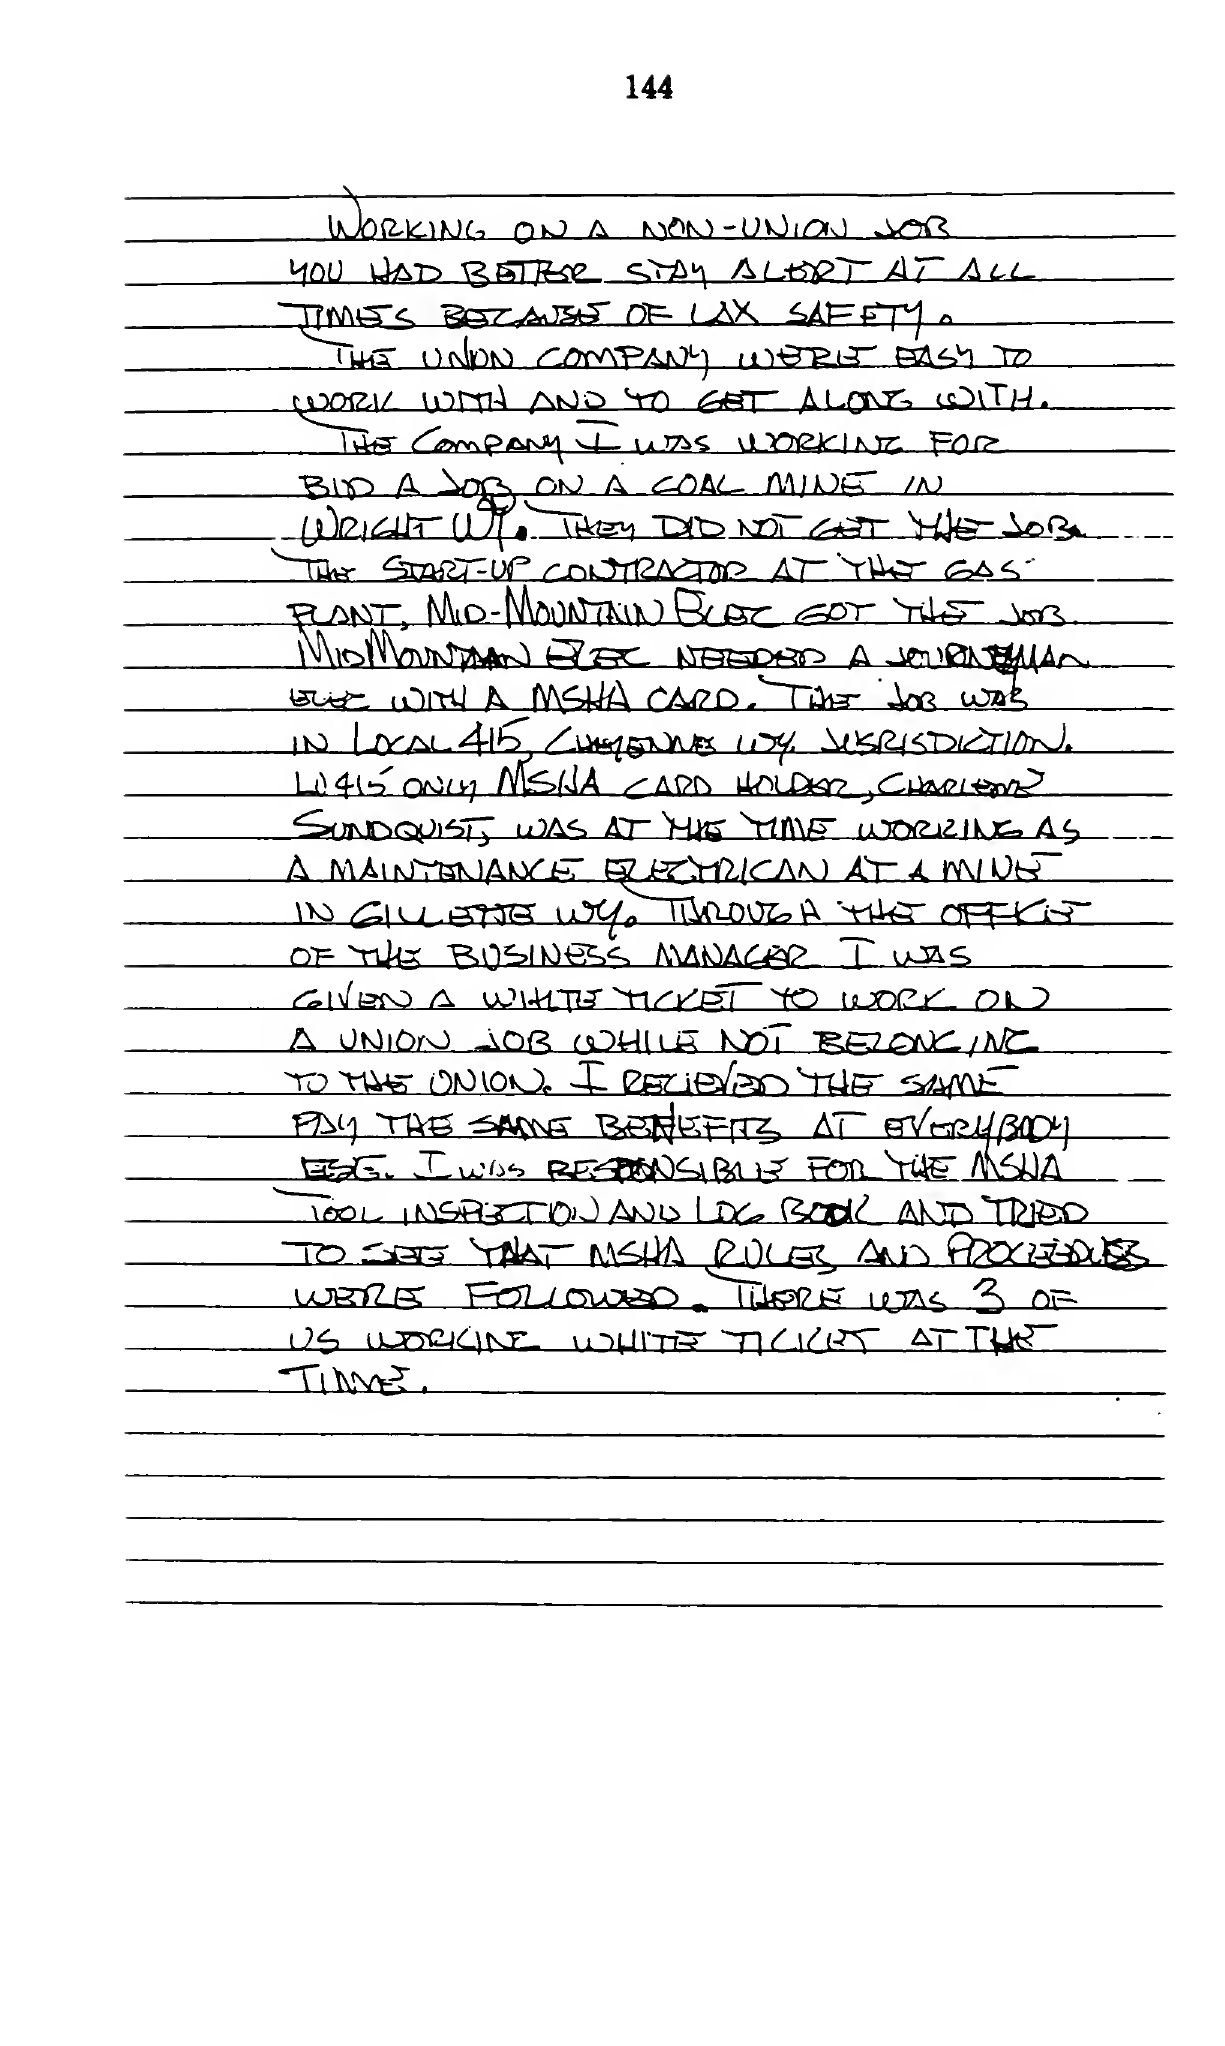 144
WORKING ON A NON-UNION JOB
YOU HAD BETTER STAY ALERT AT ALL
TIMES BECAUSE OF LAX SAFETY.
THE UNION COMPANY WERE EASY TO
WORK WITH AND TO GET ALONG WITH.
THE COMPANY I WAS WORKING FOR
BID A JOB ON A COAL MINE IN
WRIGHT WY. THEY DID NOT GET THE JOB.
THE START-UP CONTRACTOR AT THE GAS
PLANT, MID-MOUNTAIN ELEC GOT THE JOB
MIDMOUNTAIN ELEC NEEDED A JOURNEYMAN
ELEC WITH A MSHA CARD. THE JOB WAS
IN LOCAL 415, CHEYENNE WY. JUSRISDICTION.
LU 415 ONLY MSHA CARD HOLDER,
SUNDQUIST, WAS AT THE TIME WORKING AS
A MAINTENANCE ELECTRICAN AT A MINE
IN GILLETTE WY. THROUGH THE OFFICE
OF THE BUSINESS MANAGER I WAS
GIVEN A WHITE TICKET TO WORK ON
A UNION JOB WHILE NOT BELONGING
TO THE UNION. I RECIEVED THE SAME
PAY THE SAME BENEFITS AT EVERYBODY
I WAS RESPONSIBLE FOR THE MSHA
TOOL INSPECTION AND LOG BOOK AND TRIED
TO SEE THAT MSHA RULES AND
WERE FOLLOWED. THERE WAS 3 OF
US WORKING WHITE TICKET AT THE
TIME.